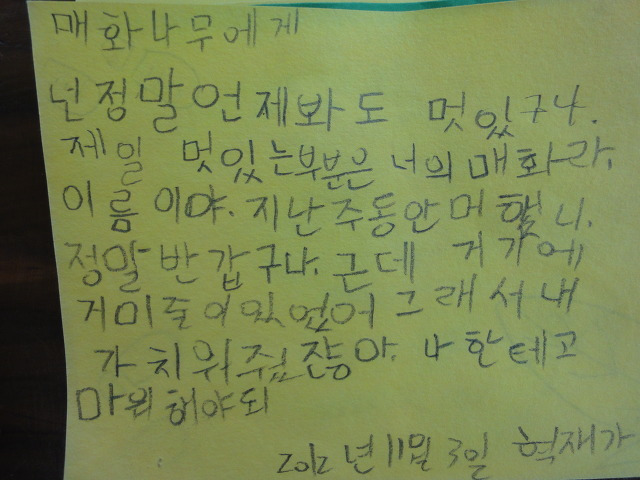 매화나무에게
넌정말언제봐도 멋있구나.
제일 멋있는부분은 너의매화라.
이름이야. 지난주동안머했니.
정말반갑구나. 근데 거기에
거미줄이있었어그래서내
가치워줬잖아. 나한테고
마워해야되
2012년11월3일 혁재가